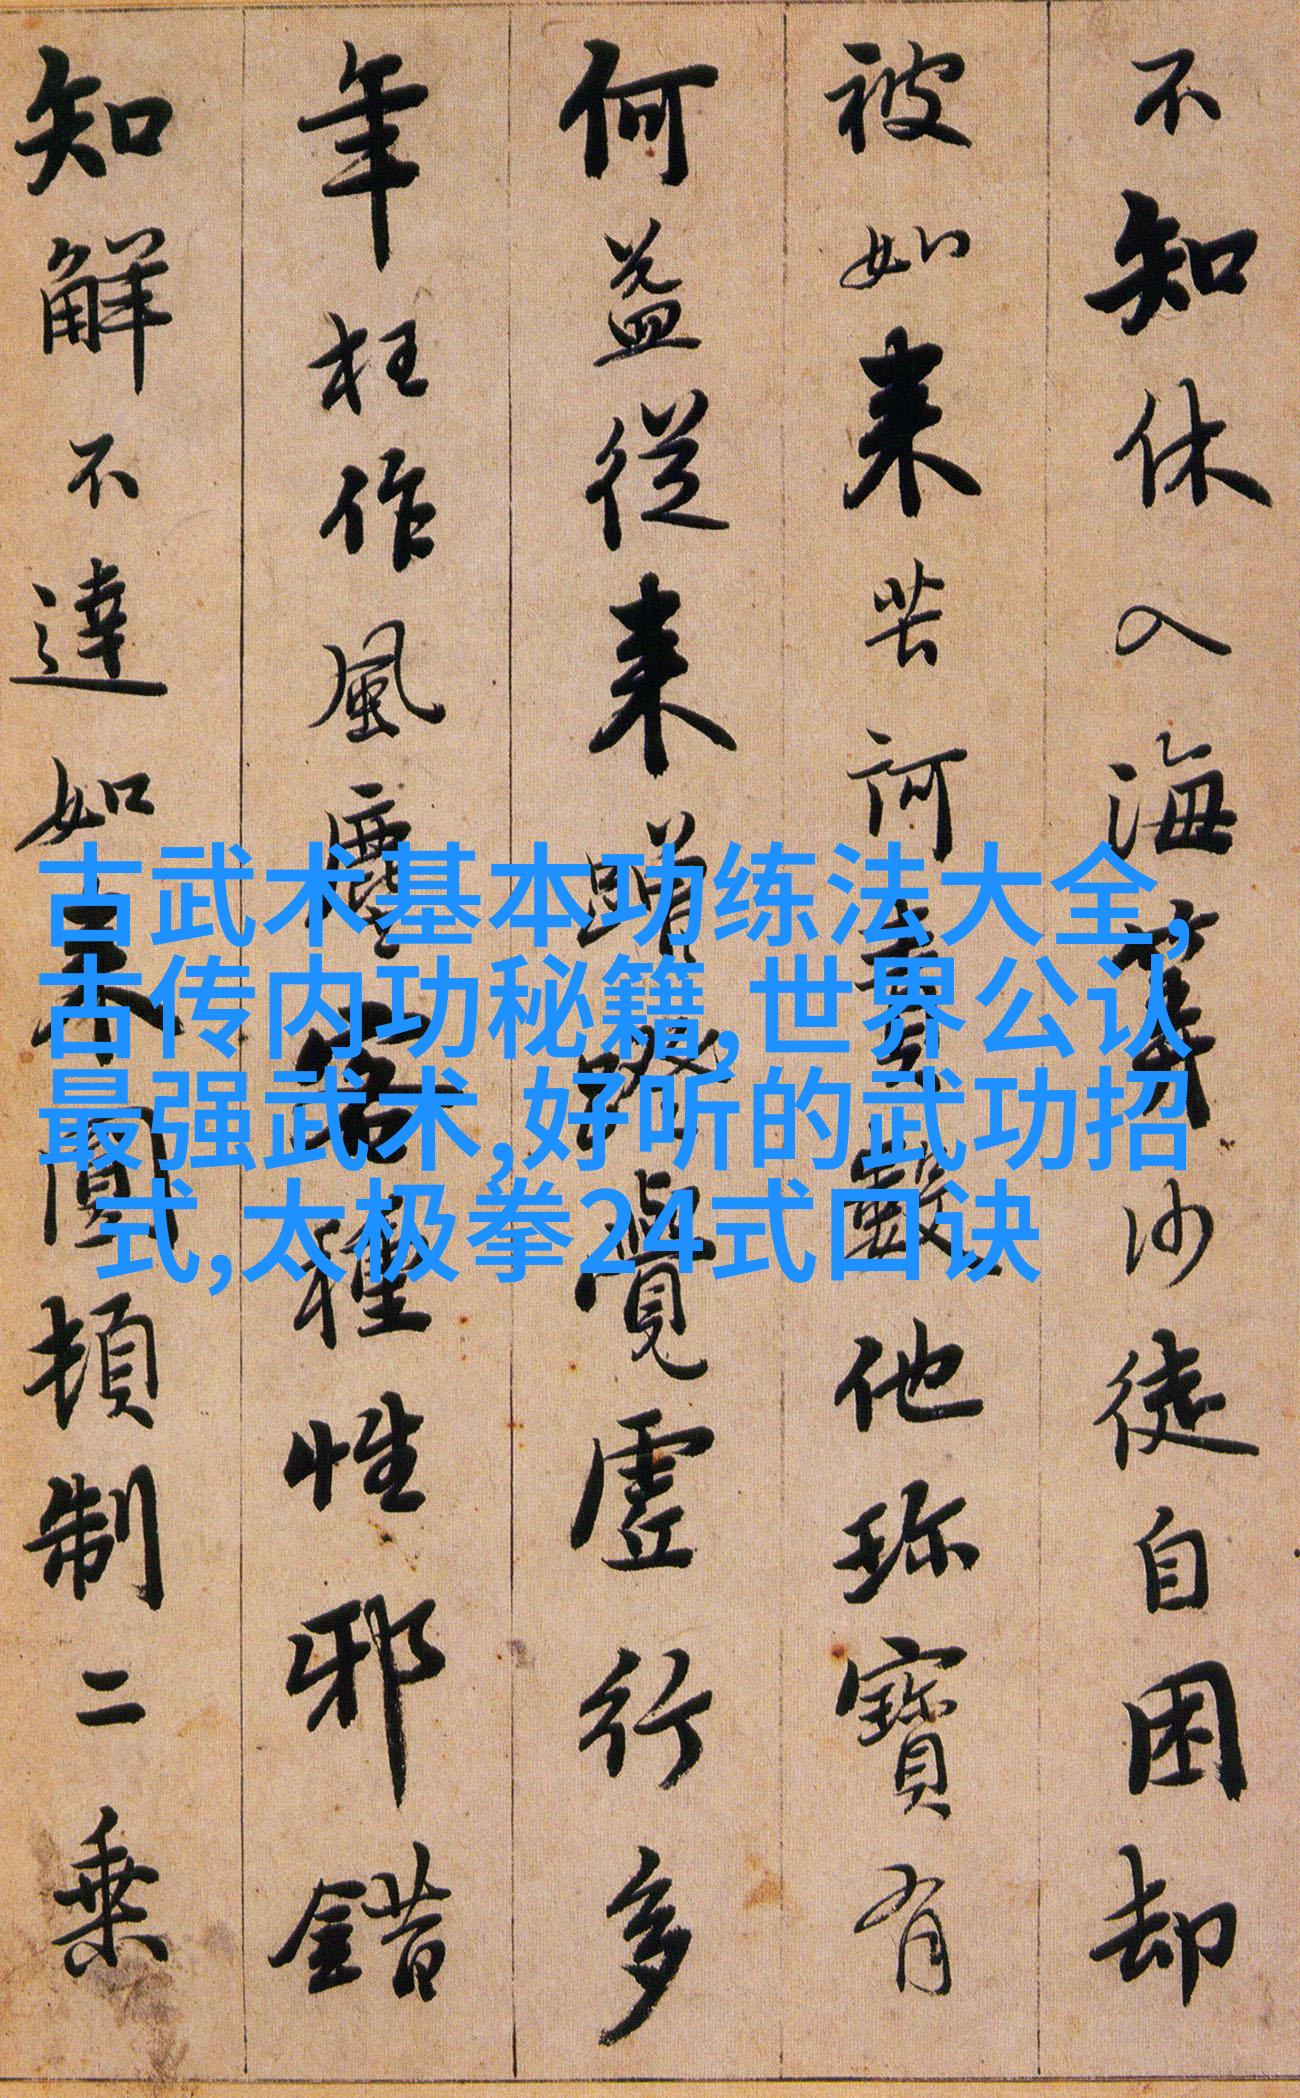 不知休入海筭沙徒自困却
被如来苦訶責數他珎寶有
何益從来蹭蹬覺虛行多
年枉作風塵客種性邪錯
知解不達如来圓頓制二乗
古武术基本功练法大全,
古传内功秘籍,世界公认
最强武术,好听的武功招
式,太极拳24式口诀